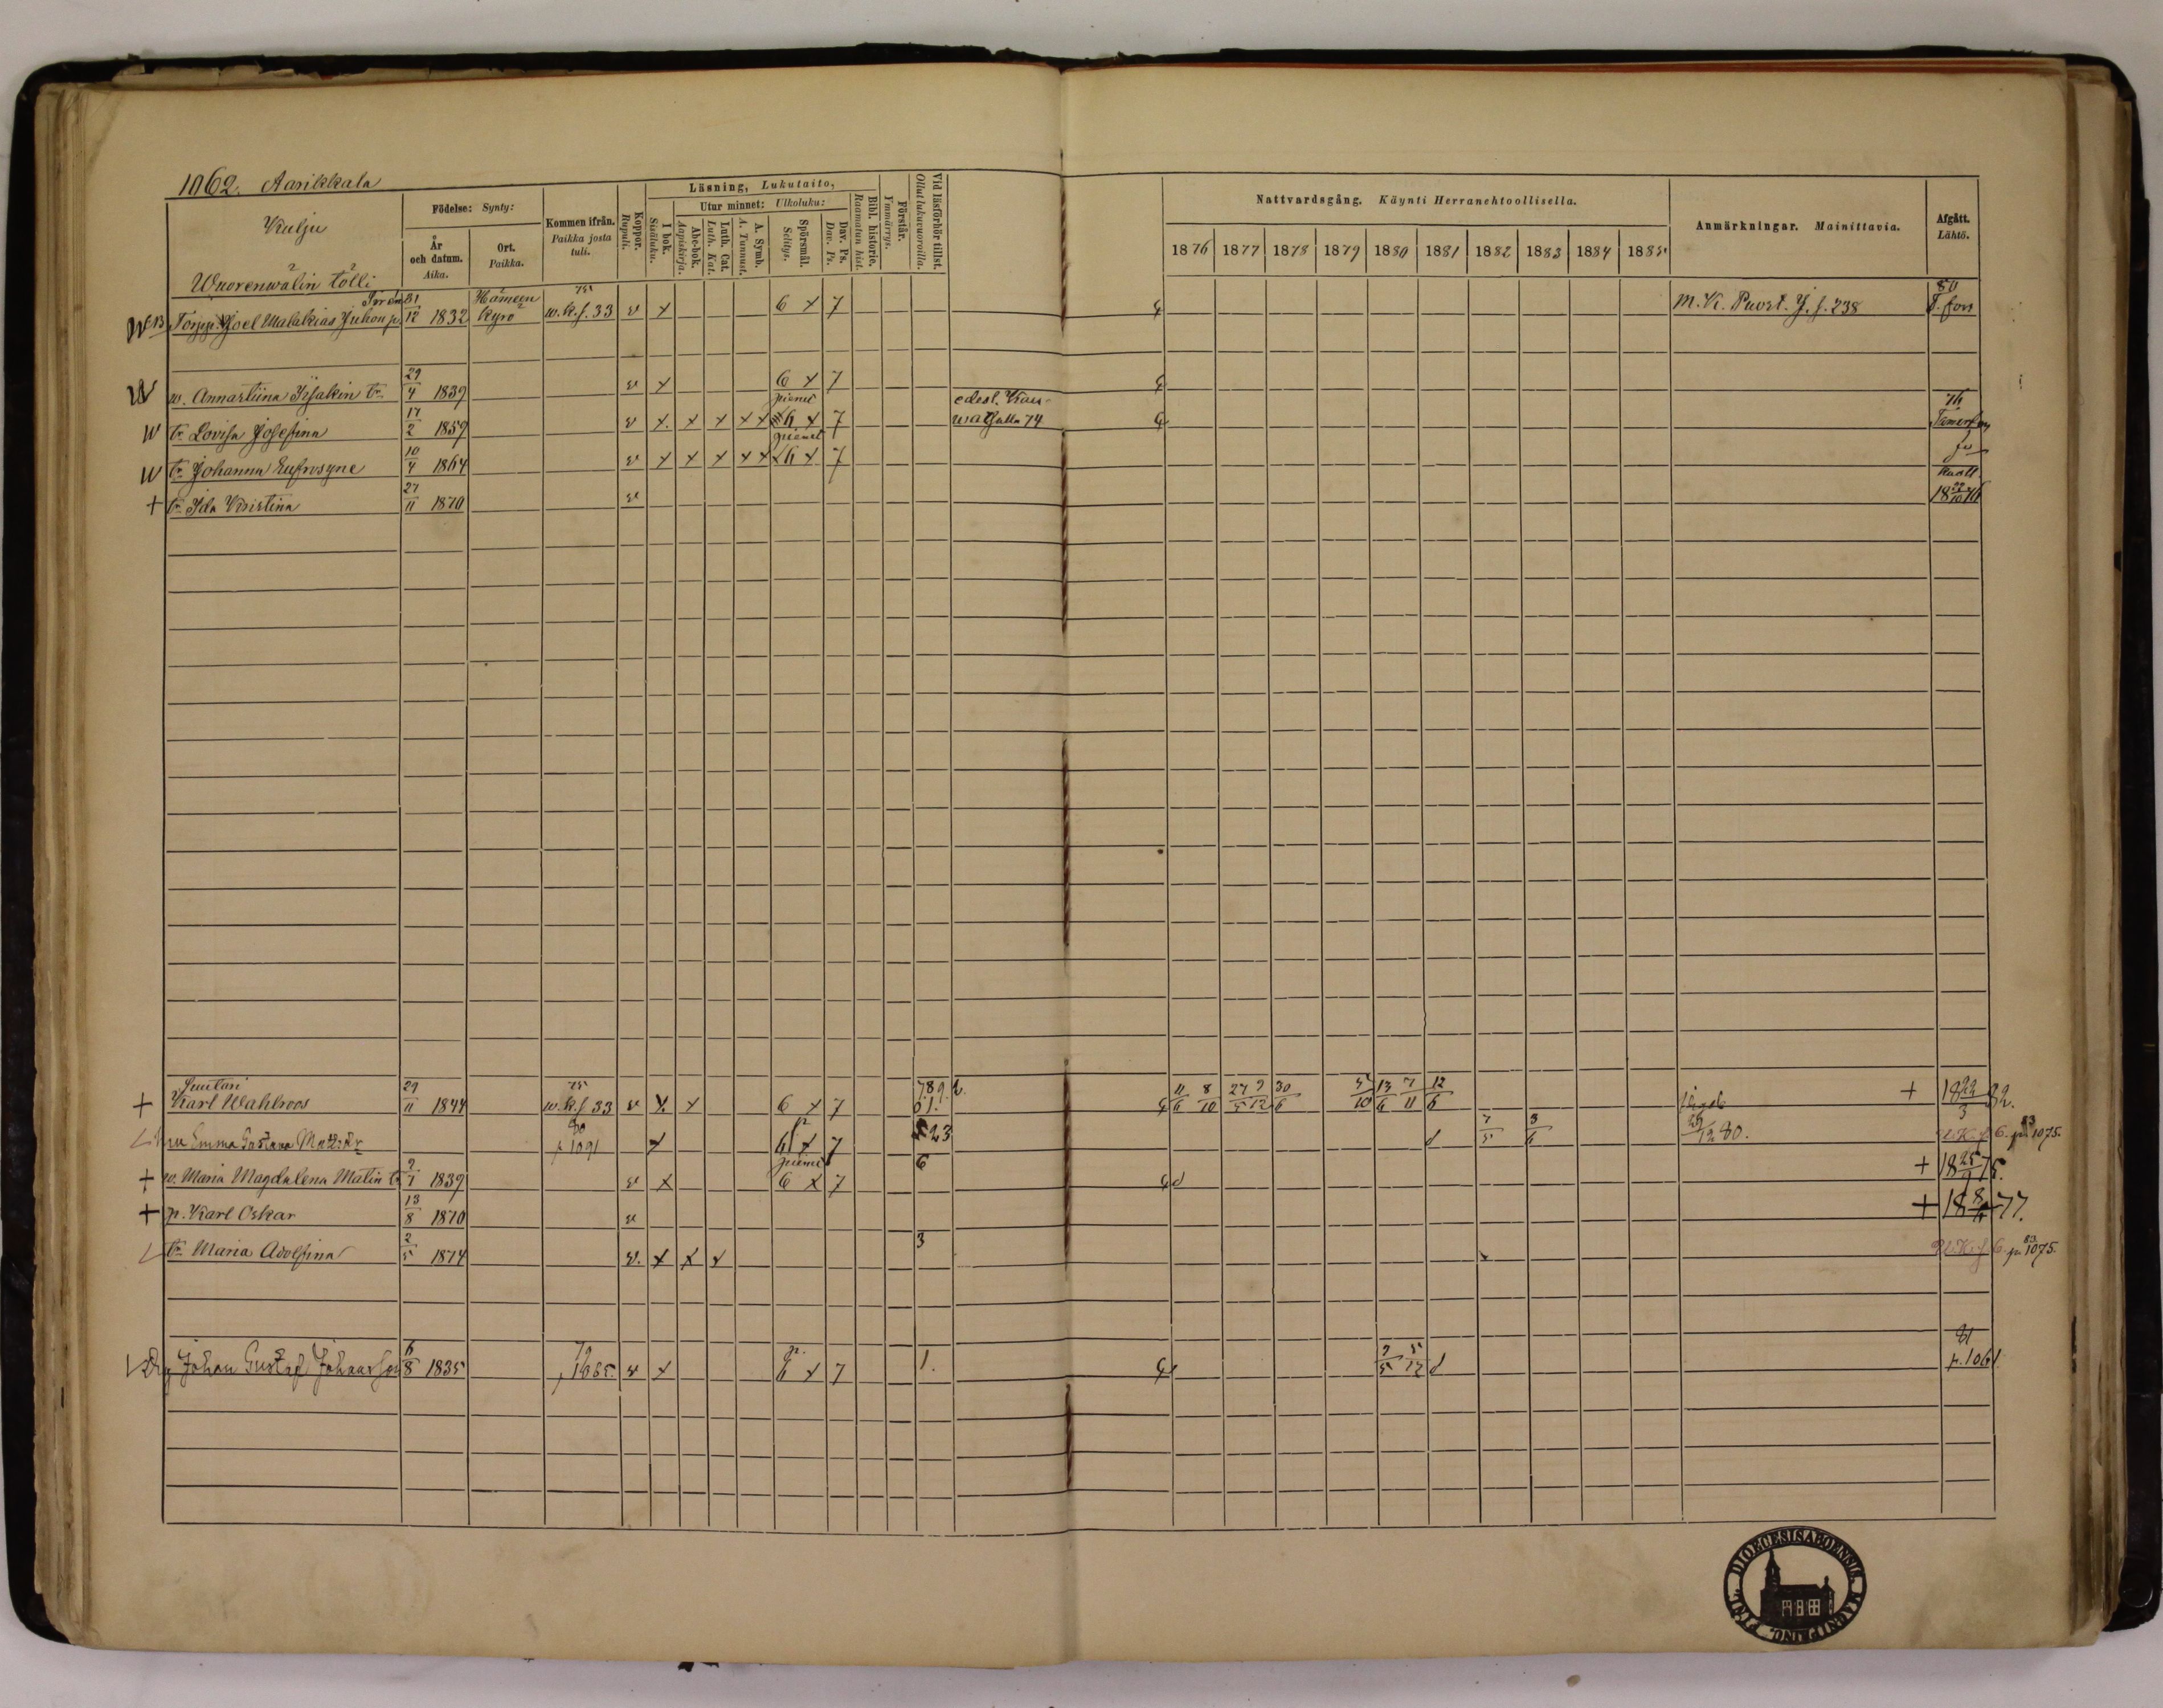 1062. Aarikkala
Kalju
Wuorenwälin tölli
Födelse: Synty:
År och datum. Aika.
Ort. Paikka.
Kommen ifrån. Paikka josta tuli.
Koppor. Rupuli.
Läsning, Lukutaito,
I bok. Sisäluku.
Utur minnet: Ulkoluku:
Abc-bok. Aapiskirja.
Luth. Cat. Luth. Kat.
A. Symb. A. Tunnust.
Spörsmål. Selitys.
Dav. Ps. Dav. Ps.
Bibl. historie. Raamatun hist.
Förstår. Ymmärrys.
Vid läsförhör tillst. Ollut lukuvuoroilla.
Nattvardsgång. Käynti Herranehtoollisella.
1876 1877 1878 1879 1880 1881 1882 1883 1884 1885
Anmärkningar. Mainittavia.
Afgått. Lähtö.
Torpp. Joel Malakias Juhon p. 31/12 1832 Hämeen kyrö 75 w.k.s. 33 v x 6 x 7 M. K. Puost. J. s. 238 80 T. fors
w. Annastiina Iisakin tr. 29/4 1839 v x 6 x 7
tr Lovisa Josefina 17/2 1859 v x x x x x pienet 6 x 7 edest. 74 76
tr Johanna Eufrosyne 10/4 1864 v x x x x x pienet 6 x 7
+ tr Ida Kristina 27/11 1870 v kuoll 18 22/10 76
Suutari
+ Karl Wahlroos 29/11 1844 75 w.k.s 33 v x x 6 x 7 7.8.9. 11/6 8/10 27/5 9/12 30/6 5/10 13/6 7/11 12/6 + 18 22/3 82.
Emma Gustava Matts dr 80 p 1091 x 6 x 7 23 7/5 3/6 29/12 80. p. 1075.
+ w. Maria Magdalena Matin tr 2/7 1839 v x pienet 6 x 7 6 + 18 75.
+ p. Karl Oskar 13/8 1870 v + 18 77.
tr Maria Adolfina 2/5 1874 v. x x x 3 83 p. 1075.
Johan Gustaf Johansson 6/8 1835 79 p 1065. v x p. 6 x 7 1. 9/5 5/12 81 p. 1061
SIGILL. DIOECESIS ABOENSIS MAGNI PRINC. FINL.